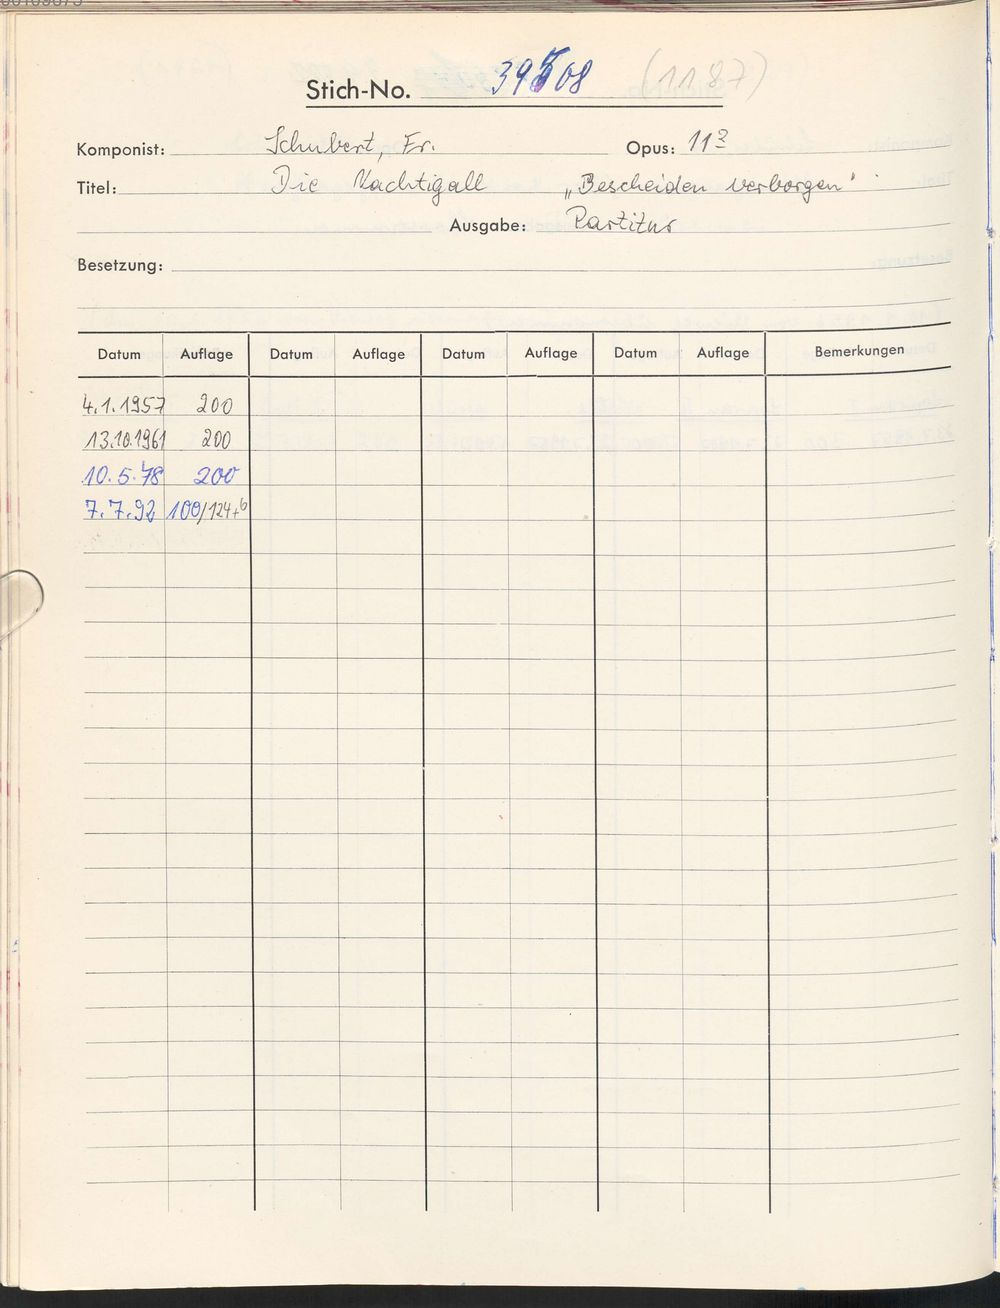 Stich-No. 39508 (1187)
Komponist: Schubert, Fr. Opus: 11²
Titel: Die Nachtigall „Bescheiden verborgen“
Ausgabe: Partitur
Besetzung:
Datum Auflage Datum Auflage Datum Auflage Datum Auflage Bemerkungen
4.1.1957 200
13.10.1961 200
10.5.78 200
7.7.92 100/124+6